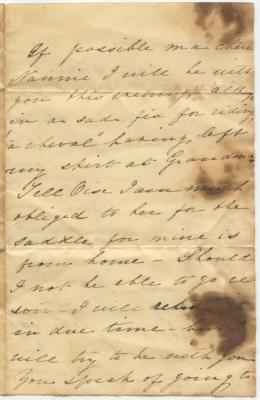 If possible ma chère
Nannie I will be with
you this evening, altho
in a sad fix for riding
"a cheval" having left
my skirt at Grandma
Tell Oise I am much
obliged to her for the
saddle for mine is
from home - Should
I not be able to go ce
soir - I will
in due time -
will try to be with you
You speak of going to